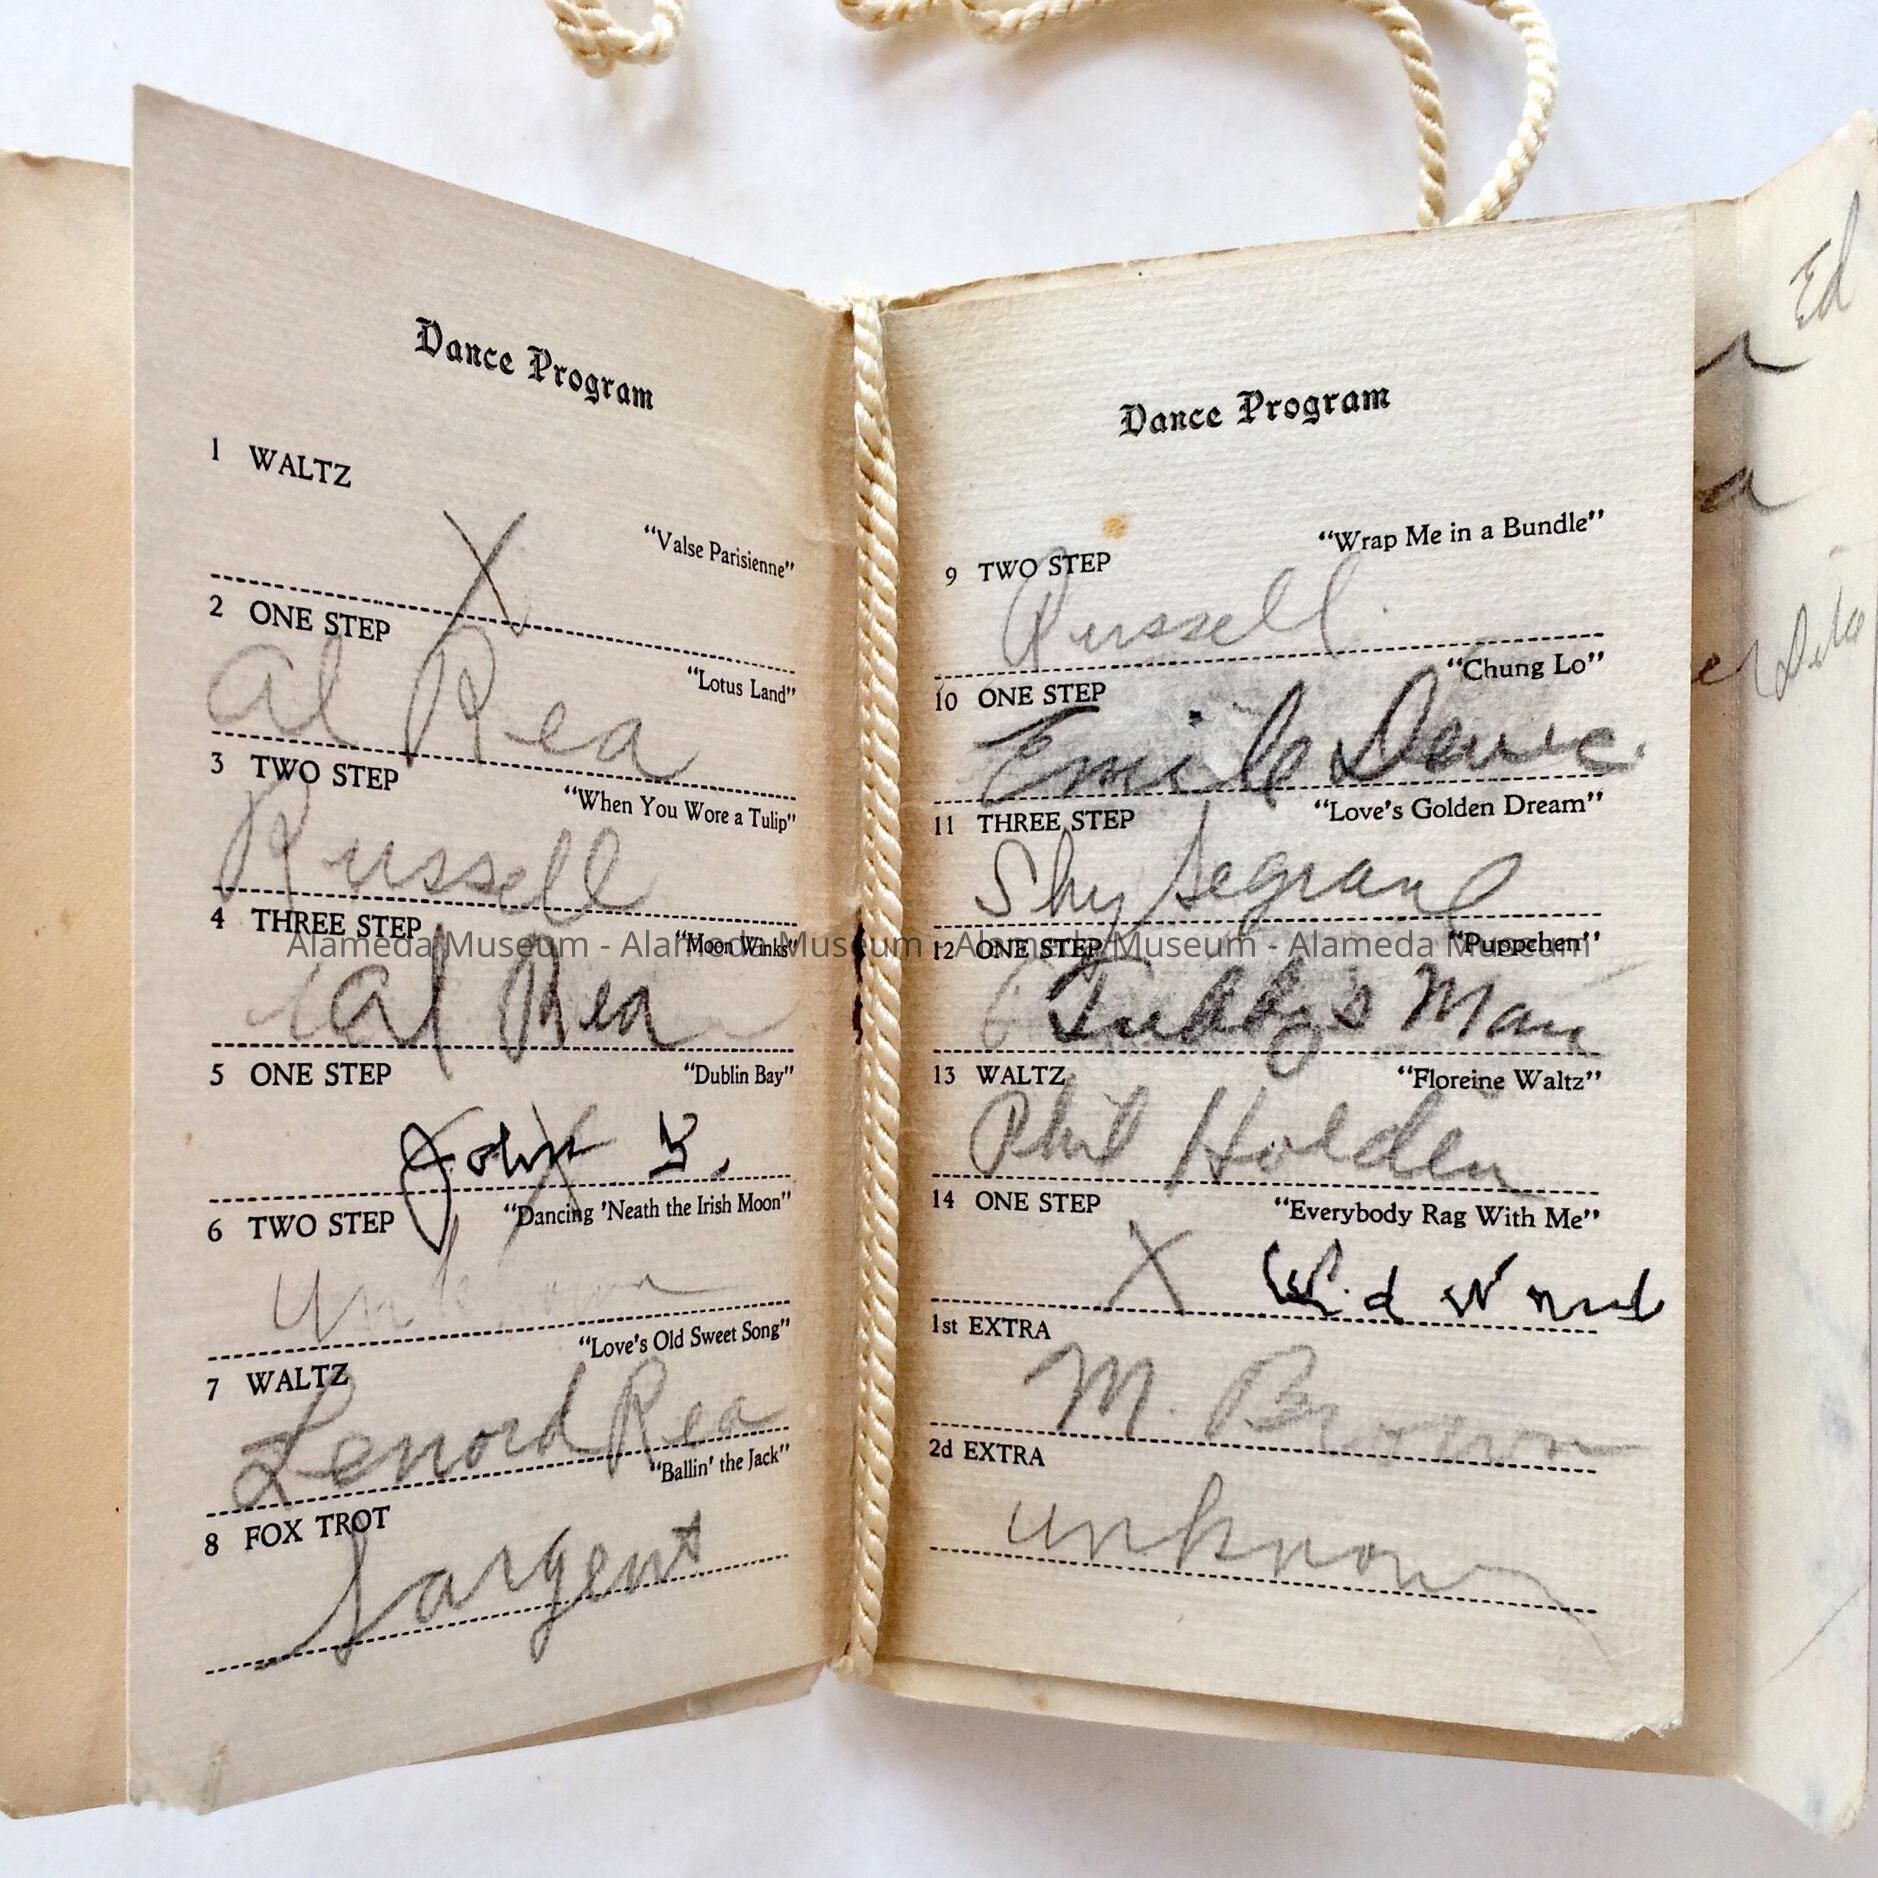 Dance Program
1 WALTZ
X "Valse Parisienne"
2 ONE STEP
"Lotus Land"
Al Rea
3 TWO STEP
"When You Wore a Tulip"
Russell
4 THREE STEP "Moon Winks"
Al Rea
5 ONE STEP "Dublin Bay"
X
6 TWO STEP "Dancing 'Neath the Irish Moon"
"Love's Old Sweet Song"
7 WALTZ
Lenord Rea
"Ballin' the Jack"
8 FOX TROT
Sargent
Dance Program
"Wrap Me in a Bundle"
9 TWO STEP
Russell
"Chung Lo"
10 ONE STEP
Emile
"Love's Golden Dream"
11 THREE STEP
Shy
12 ONE STEP "Puppchen"
Tubby's Man
13 WALTZ "Floreine Waltz"
Phil Holden
14 ONE STEP "Everybody Rag With Me"
X
1st EXTRA
M. Brown
2d EXTRA
unknown
Ed
Alameda Museum - Alameda Museum - Alameda Museum - Alameda Museum